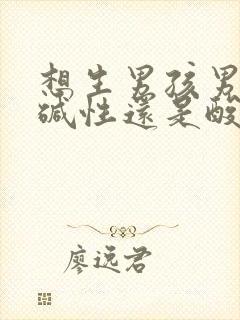 想生男孩男
碱性還是酸
廖远君